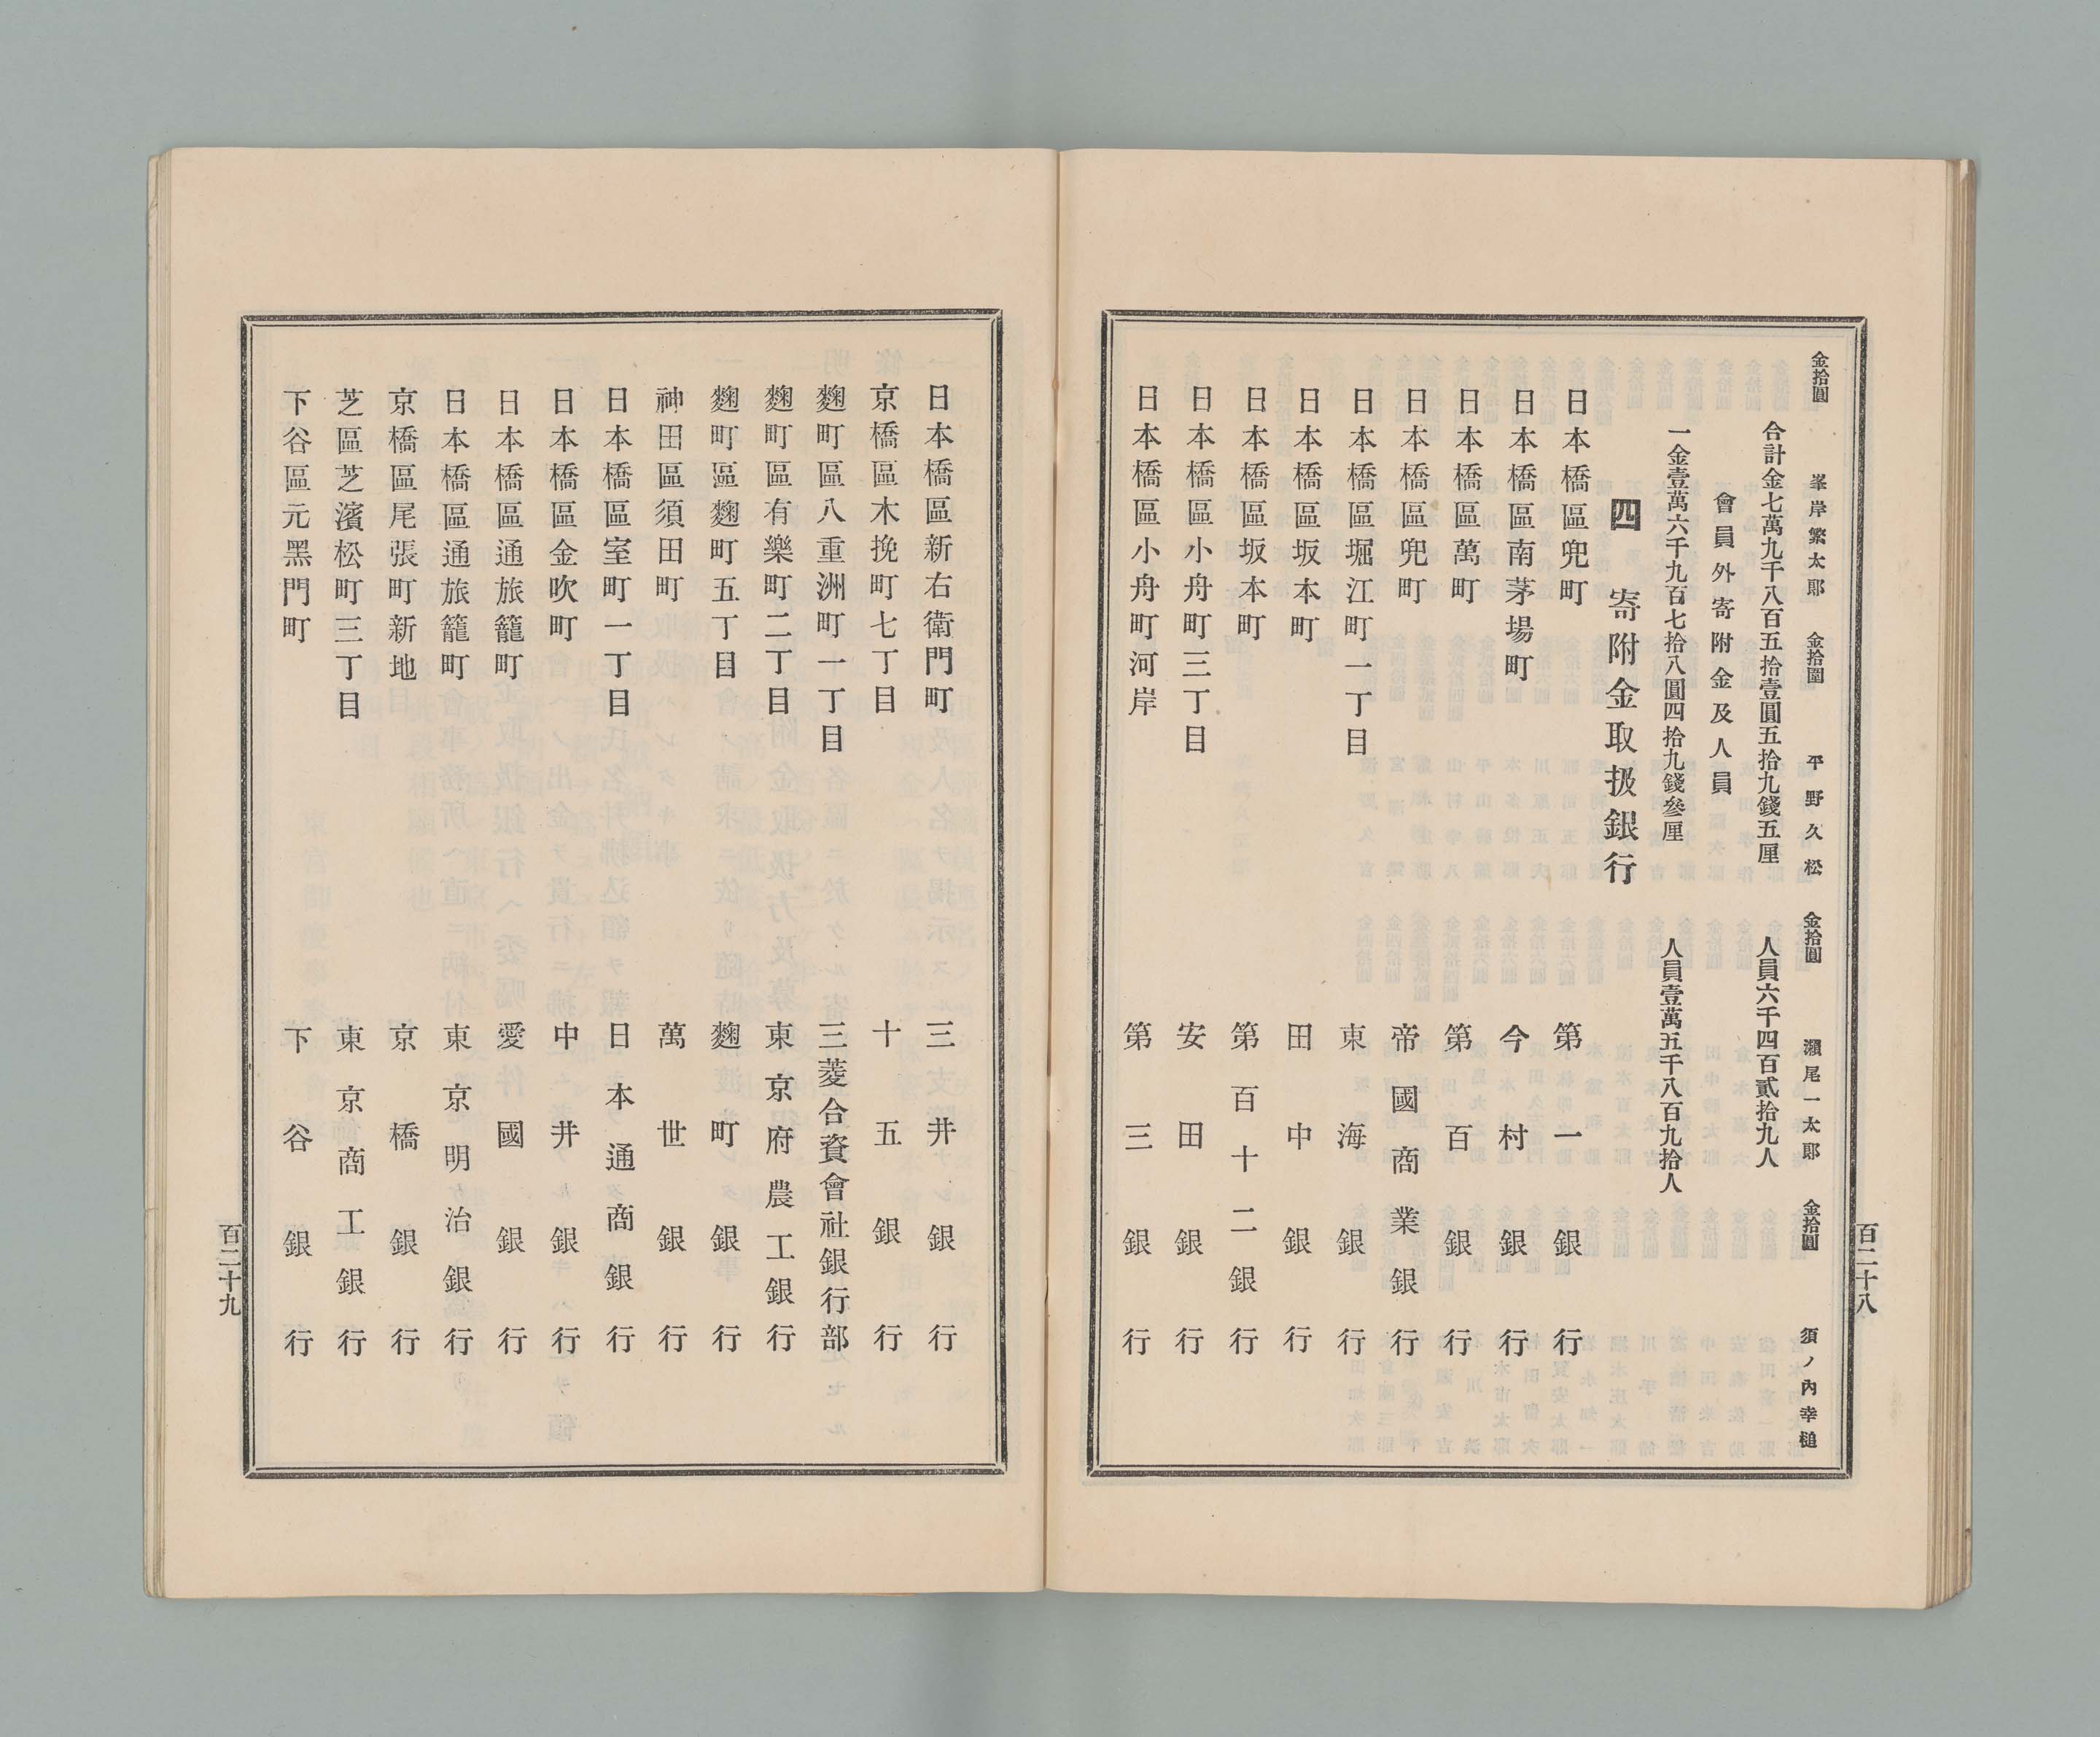 百二十八
金拾圓 峯岸繁太郎 金拾圓 平野久松 金拾圓 瀨尾一太郎 金拾圓 須ノ內幸槌
合計金七萬九千八百五拾壹圓五拾九錢五厘 人員六千四百貳拾九人
會員外寄附金及人員
一金壹萬六千九百七拾八圓四拾九錢參厘 人員壹萬五千八百九拾人
四 寄附金取扱銀行
日本橋區兜町 第一銀行
日本橋區南茅場町 今村銀行
日本橋區萬町 第百銀行
日本橋區兜町 帝國商業銀行
日本橋區堀江町一丁目 東海銀行
日本橋區坂本町 田中銀行
日本橋區坂本町 第百十二銀行
日本橋區小舟町三丁目 安田銀行
日本橋區小舟町河岸 第三銀行
日本橋區新右衛門町 三井銀行
京橋區木挽町七丁目 十五銀行
麴町區八重洲町一丁目 三菱合資會社銀行部
麴町區有樂町二丁目 東京府農工銀行
麴町區麴町五丁目 麴町銀行
神田區須田町 萬世銀行
日本橋區室町一丁目 日本通商銀行
日本橋區金吹町 中井銀行
日本橋區通旅籠町 愛國銀行
日本橋區通旅籠町 東京明治銀行
京橋區尾張町新地 京橋銀行
芝區芝濱松町三丁目 東京商工銀行
下谷區元黑門町 下谷銀行
百二十九